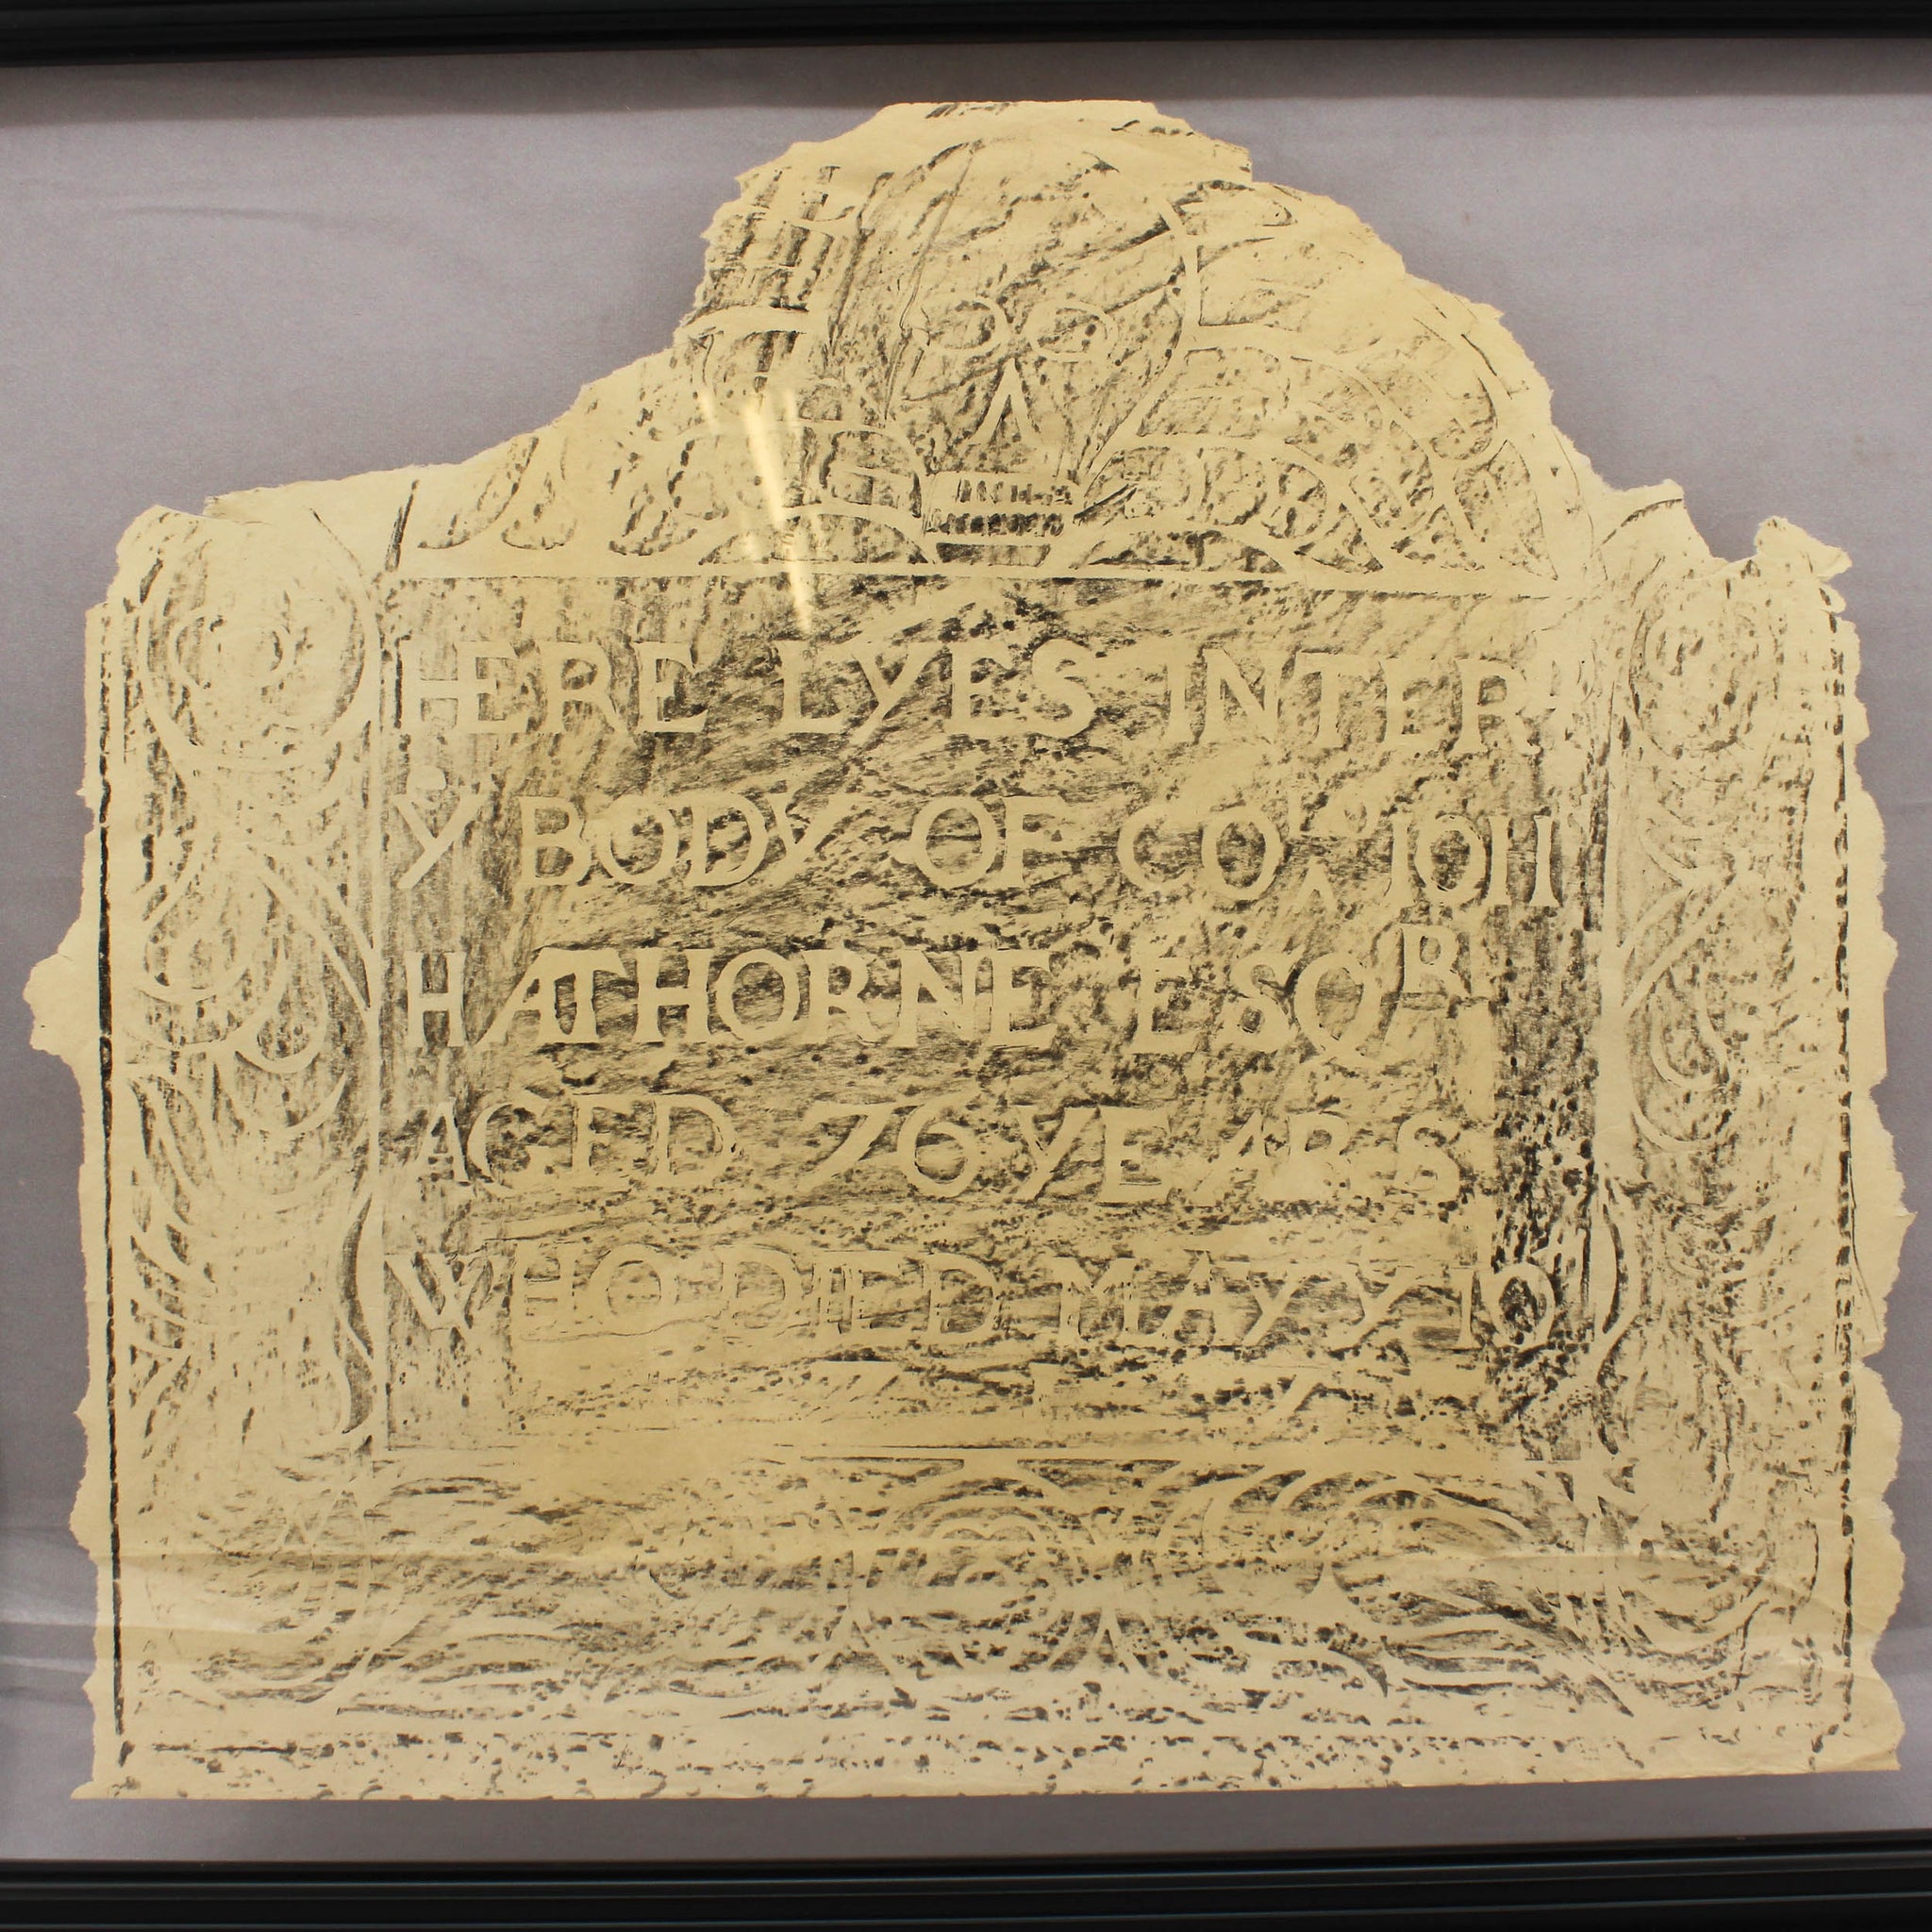 HERE LYES INTERD
Y BODY OF COLO JOHN
HATHORNE ESQR
AGED 76 YEARS
WHO DIED MAY Y 10